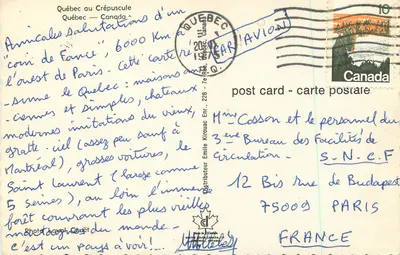 Québec au Crépuscule
Québec — Canada
Amicales salutations d'un
"coin de France", 6000 Km
l'ouest de Paris. Cette carte
-sume le Québec : maisons an-
-ciennes et simples, châteaux
modernes imitations du vieux,
gratte-ciel (assez peu sauf à
Montréal), grosses voitures, le
Saint Laurent (large comme
5 seines), au loin l'immense
forêt couvrant les plus vieilles
montagnes du monde —
c'est un pays à voir!...
QUEBEC
PAR AVION
10
Canada
post card - carte postale
Distributeur Emile Kirouac Enr.,
Mme Cosson et le personnel du
3eme Bureau des Facilités de
Circulation. S.N.C.F
12 Bis rue de Budapest
75009 PARIS
FRANCE